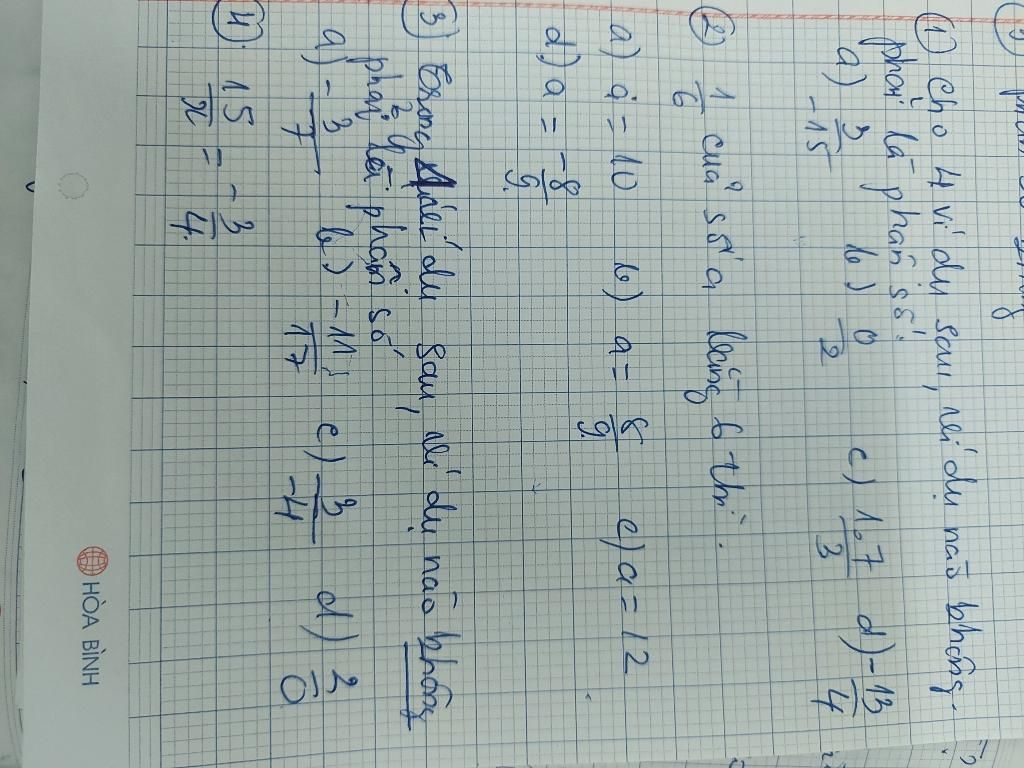 ① Cho 4 ví dụ sau, ví dụ nào không
phải là phân số:
a) 3/-15 b) 0/2 c) 1,7/3 d) -13/4
② 1/6 của số a bằng 6 thì:
a) a = 10 b) a = 8/9 c) a = 12
d) a = -8/9
③ Trong 4 ví dụ sau, ví dụ nào không
phải là phân số
a) -3/7 b) -11/17 c) 3/-4 d) 2/0
④ 15/x = -3/4
HÒA BÌNH